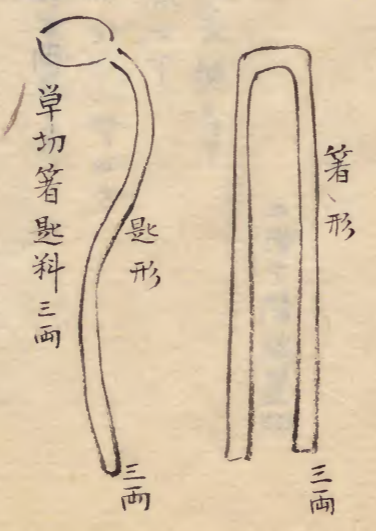 箸ヽ形
三両
匙形
三両
草切箸匙料三両